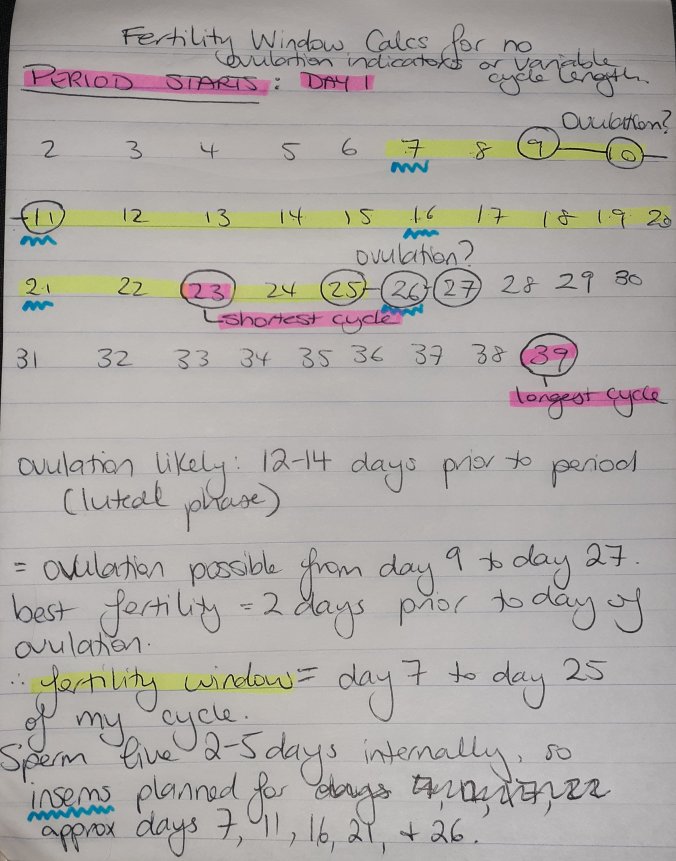 Fertility Window Calcs for no
ovulation indicators or variable
cycle length.
PERIOD STARTS: DAY 1
Ovulation?
2 3 4 5 6 7 8 9 10
11 12 13 14 15 16 17 18 19 20
ovulation?
21 22 23 24 25 26 27 28 29 30
shortest cycle
31 32 33 34 35 36 37 38 39
longest cycle
ovulation likely: 12-14 days prior to period
(luteal phase)
= ovulation possible from day 9 to day 27.
best fertility = 2 days prior to day of
ovulation.
∴ fertility window = day 7 to day 25
of my cycle.
Sperm live 2-5 days internally, so
insems planned for days
approx days 7, 11, 16, 21, + 26.